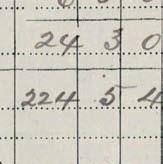 24 3 0
224 5 4